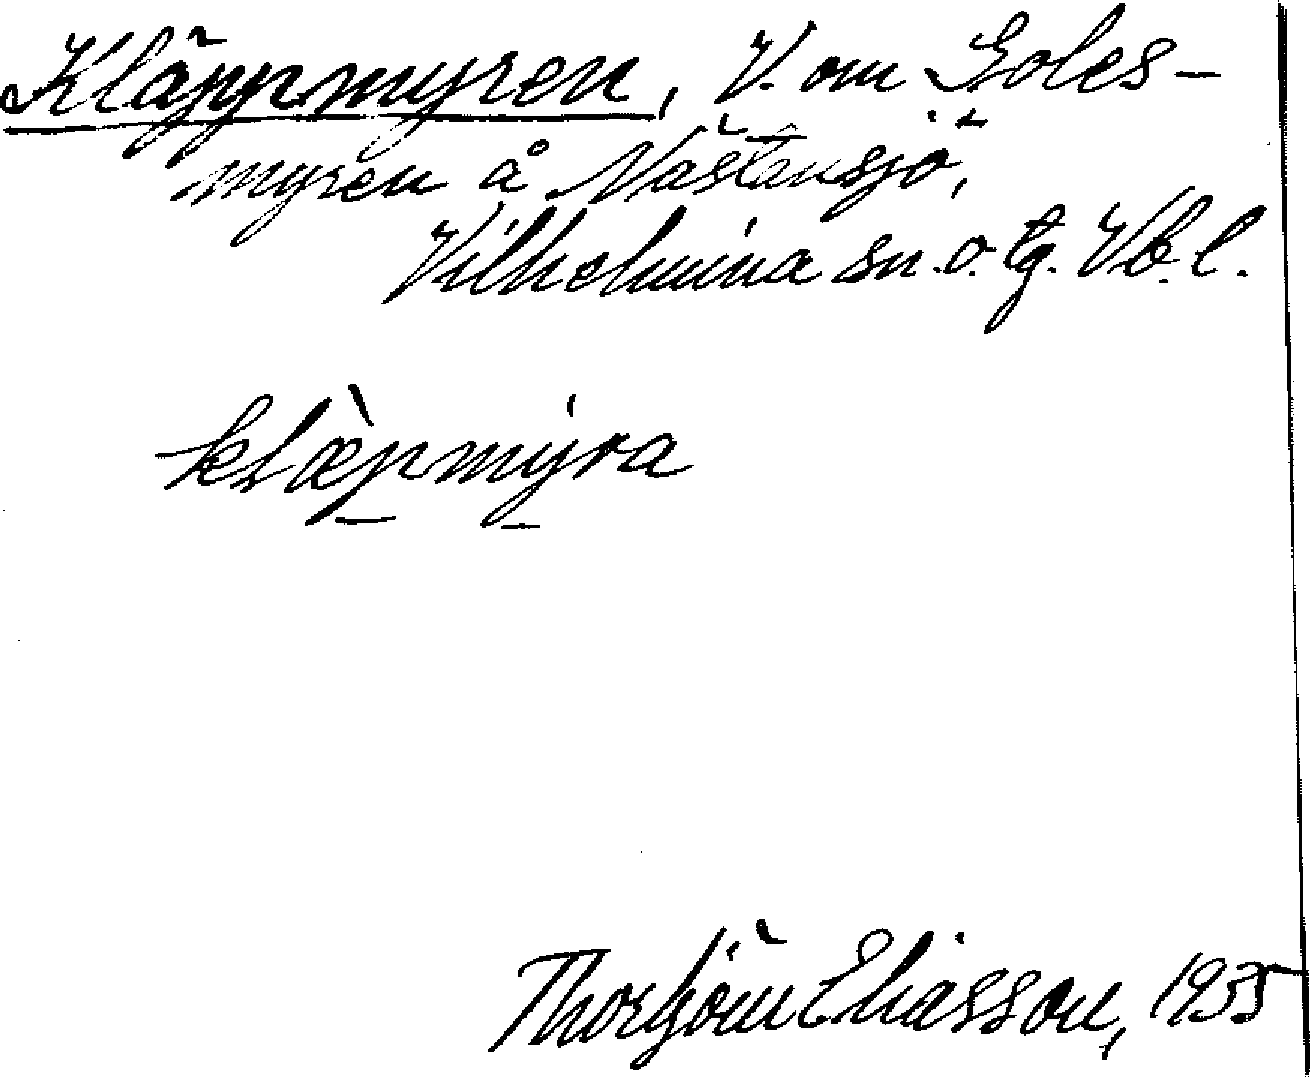 Kläppmyren, V. om Goles-
myren å Nästansjö,
Vilhelmina sn. o. tg. Vb. l.
klæ̀pmýra
Thorbjörn Eliasson, 1935